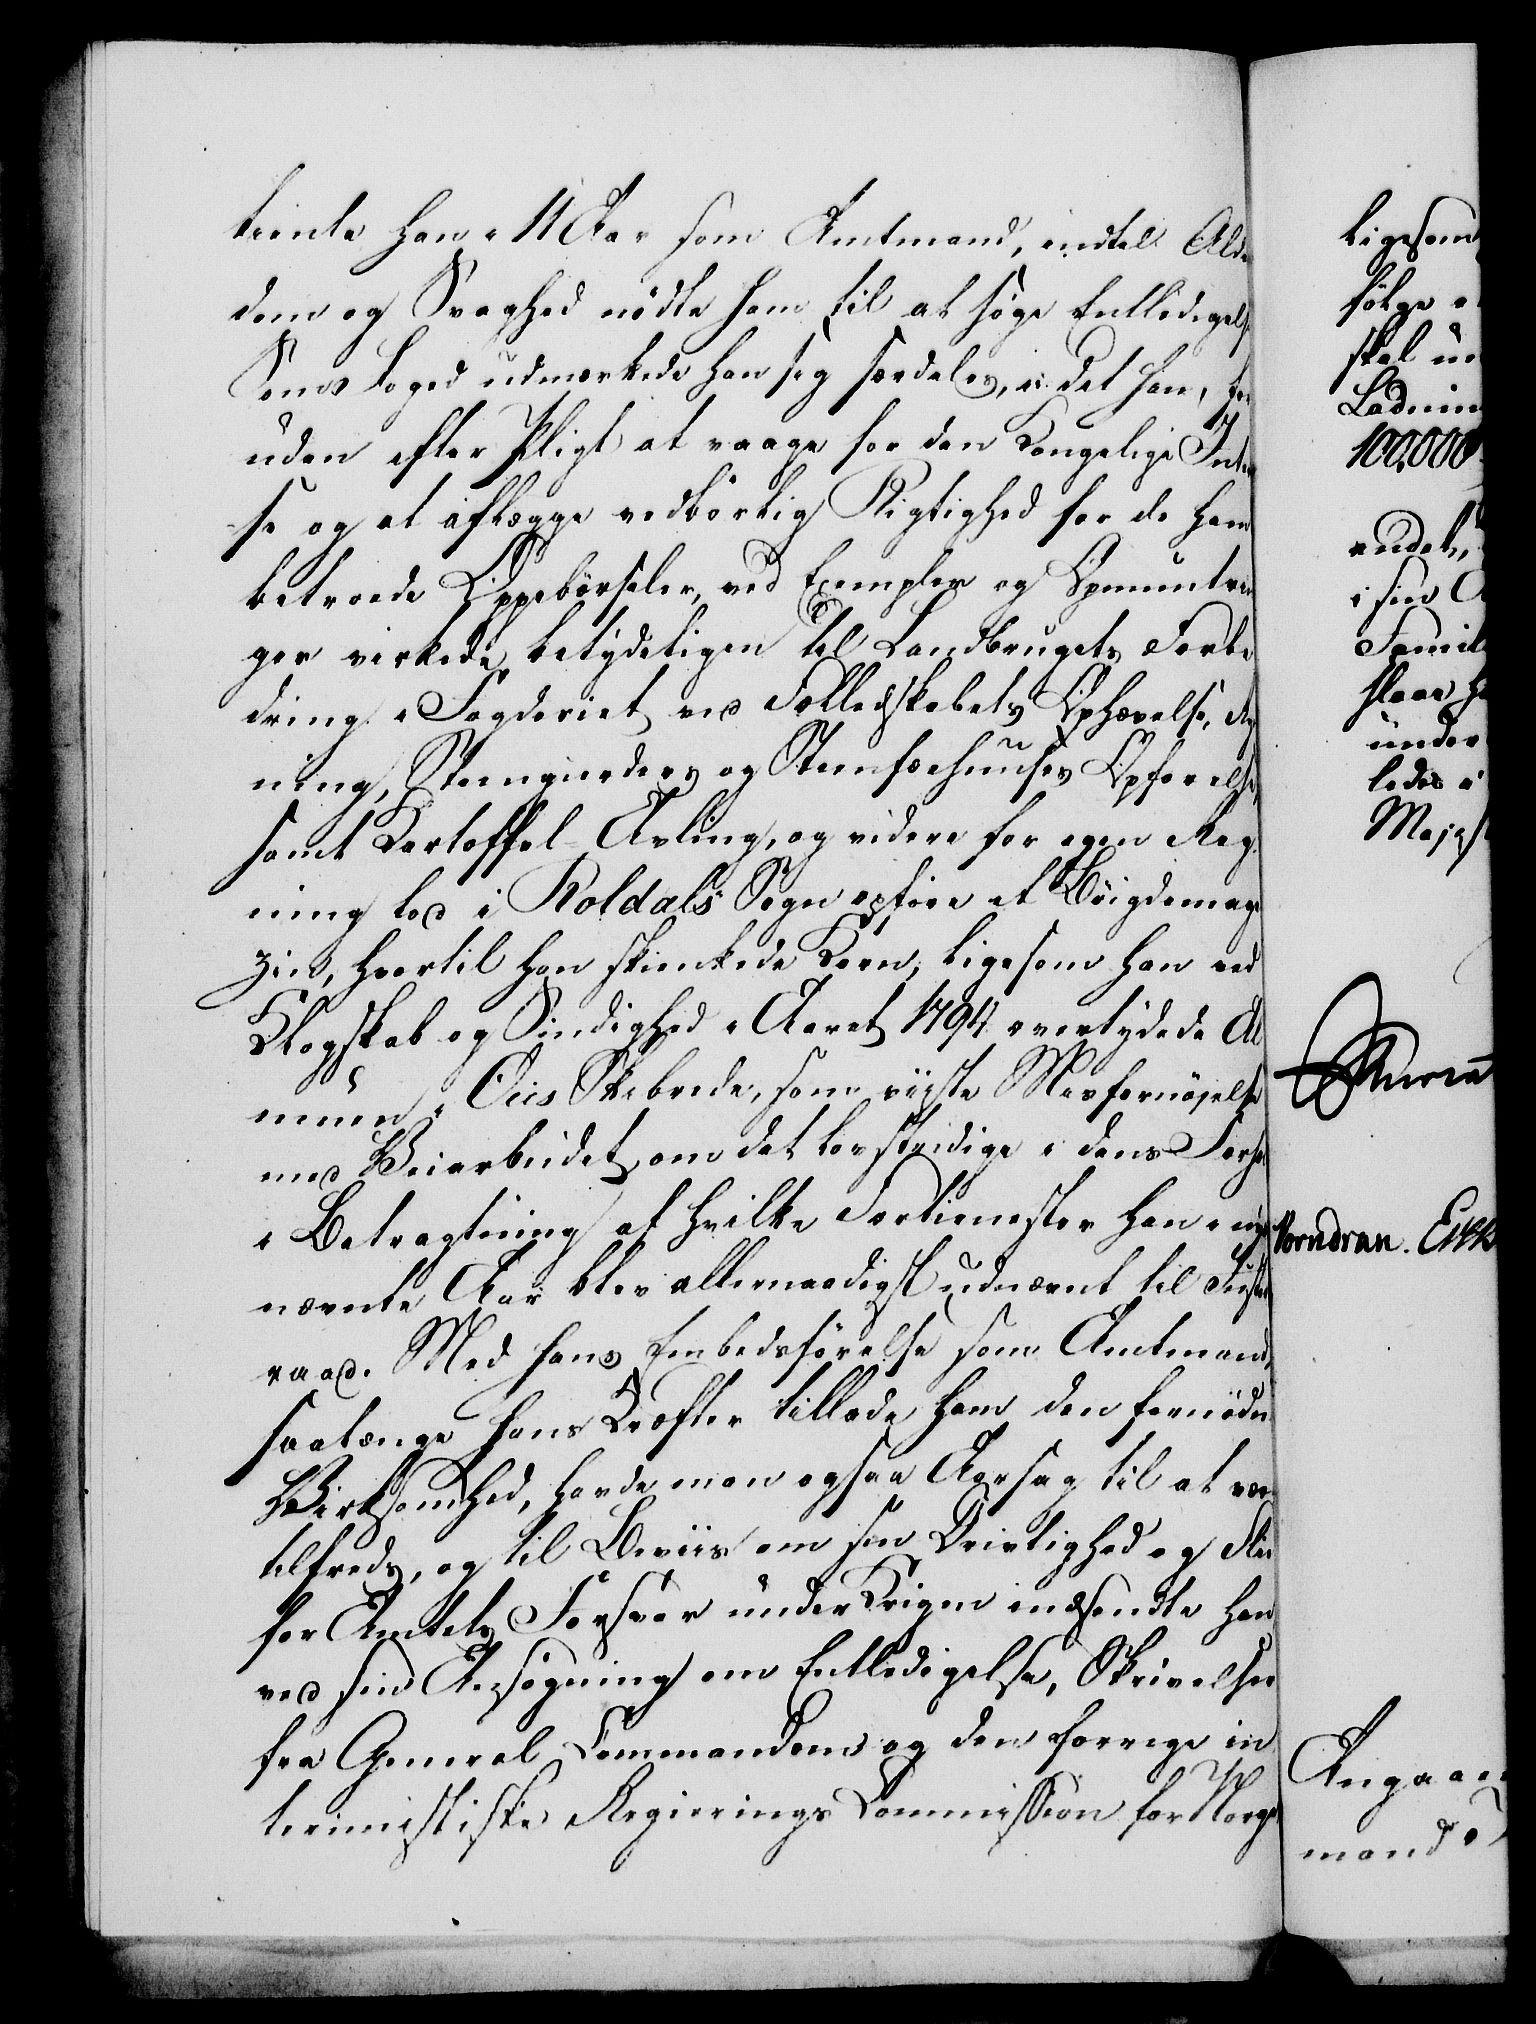 tiente han i 11 Aar som Amtmand, indtil Alder
dom og Svaghed nödte ham til at söge Entledigelse
Som Foged udmærkede han sig særdeles, i det han, for
uden efter Pligt at vaage for den Kongelige Intres
se og at aflægge vedbörlig Rigtighed for de ham
betroede Oppebörseler, ved Exempler og Opmuntrin
ger virkede betydeligen til Landbrugets Forbe
dring i Fogderiet ved Fælledskabets Ophævelse, Ryd
ning, Steengierders og Steenfæehuuses Opförelse,
samt Kartoffel-Avling, og videre for egen Reg
ning lod i Roldals Sogn opföre et Böigdemaga
zin, hvortil han skienkede Korn, ligesom han ved
Klogskab og Sindighed i Aaret 1794 overtydede Al
muen i Ous Skibrede, som viiste Misfornöjelse
med Veiarbeidet, om det lovstridige i dens Forhold
i Betragtning af hvilke Fortienester han i nys
nævnte Aar blev allernaadigst udnævnt til Justits
raad. Med hans Embedsförelse som Amtmand,
saalænge hans Kræfter tillode ham den fornödne
Virksomhed, havde man ogsaa Aarsag til at være
tilfreds, og til Beviis om sin Driftighed og Flid
for Amtets Forsvar under Krigen indsendte han
ved sin Ansögning om Entledigelse, Skrivelser
fra General Commandoen og den forrige in
terimistiske Regierings Commission for Norge
ligesom
fölge
skal
Ladnin
100,000
andet,
i sin
Famili
staae
under
ledes
Majest
Vorndran.
Angaaen
mand